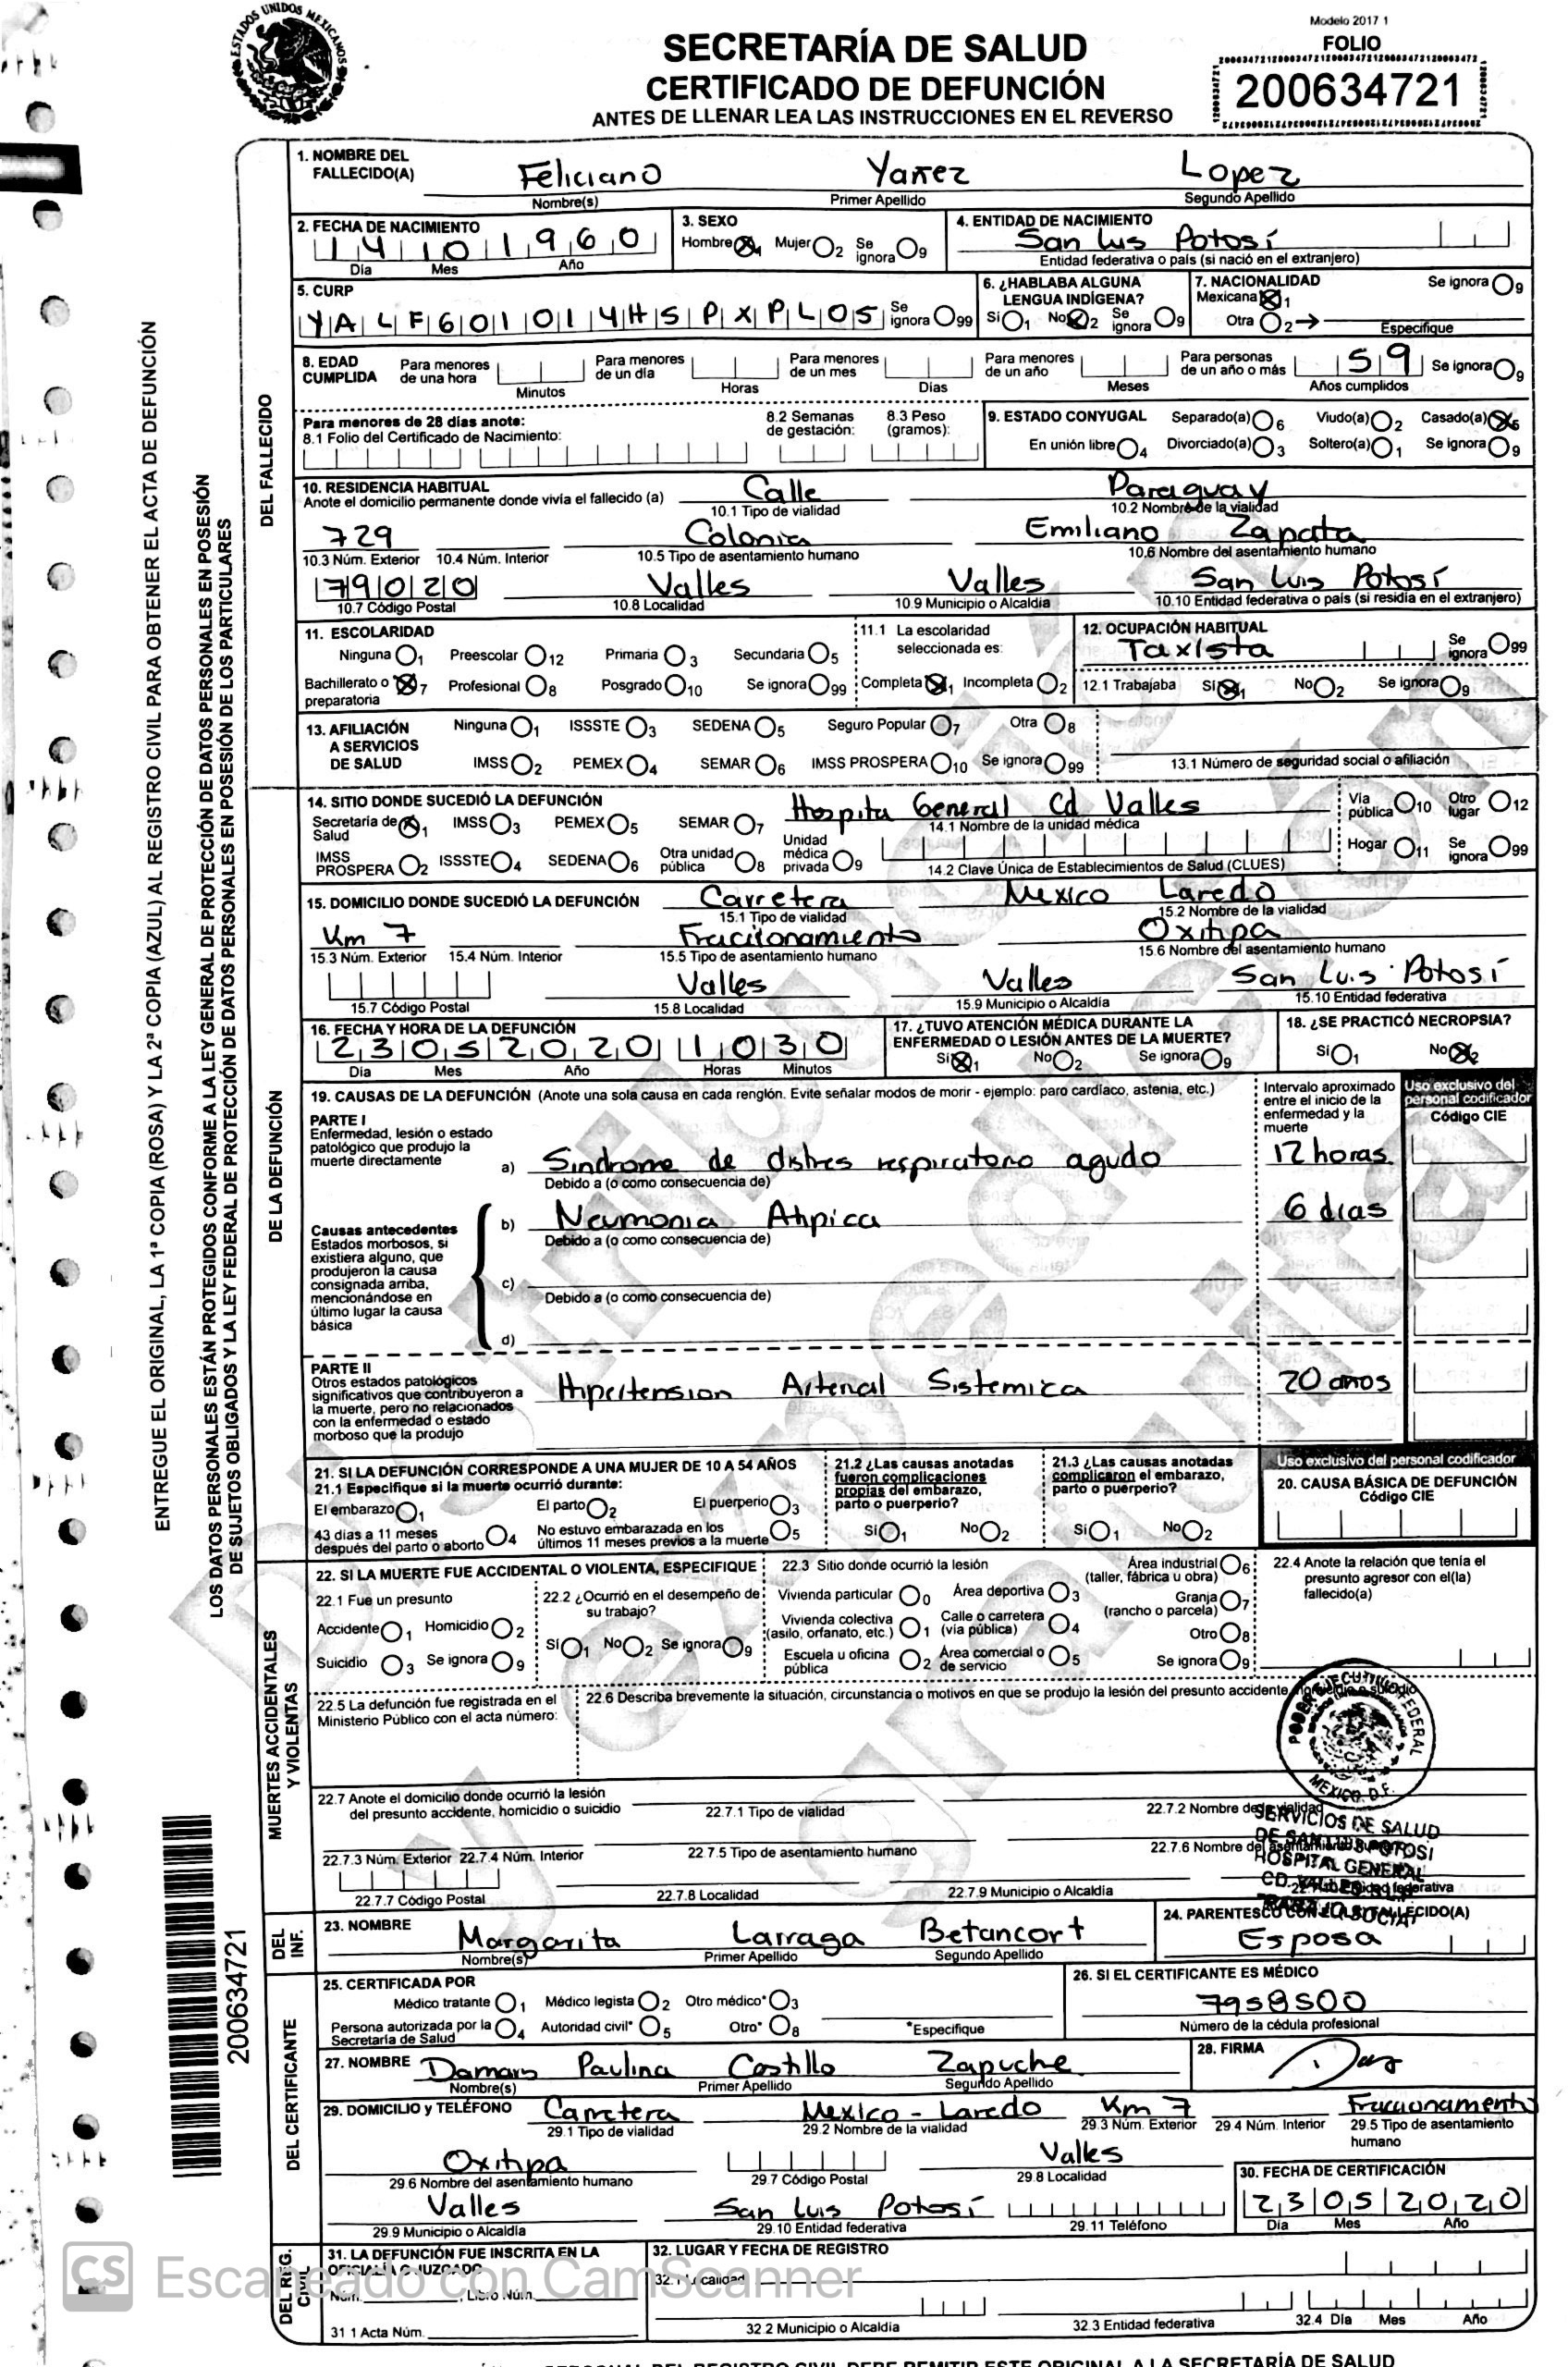 Modelo 2017 1
FOLIO
200634721
ESTADOS UNIDOS MEXICANOS
SECRETARÍA DE SALUD
CERTIFICADO DE DEFUNCIÓN
ANTES DE LLENAR LEA LAS INSTRUCCIONES EN EL REVERSO
ENTREGUE EL ORIGINAL, LA 1ª COPIA (ROSA) Y LA 2ª COPIA (AZUL) AL REGISTRO CIVIL PARA OBTENER EL ACTA DE DEFUNCIÓN
LOS DATOS PERSONALES ESTÁN PROTEGIDOS CONFORME A LA LEY GENERAL DE PROTECCIÓN DE DATOS PERSONALES EN POSESIÓN
DE SUJETOS OBLIGADOS Y LA LEY FEDERAL DE PROTECCIÓN DE DATOS PERSONALES EN POSESIÓN DE LOS PARTICULARES
DEL FALLECIDO
1. NOMBRE DEL FALLECIDO(A) Feliciano Yañez Lopez
Nombre(s) Primer Apellido Segundo Apellido
2. FECHA DE NACIMIENTO 14 10 1960
Día Mes Año
3. SEXO
Hombre 1 Mujer 2 Se ignora 9
4. ENTIDAD DE NACIMIENTO
San Luis Potosí
Entidad federativa o país (si nació en el extranjero)
5. CURP
YALF601014HSPXPL05 Se ignora 99
6. ¿HABLABA ALGUNA LENGUA INDÍGENA?
Sí 1 No 2 Se ignora 9
7. NACIONALIDAD Se ignora 9
Mexicana 1
Otra 2 Especifique
8. EDAD CUMPLIDA Para menores de una hora Minutos
Para menores de un día Horas
Para menores de un mes Días
Para menores de un año Meses
Para personas de un año o más 59 Se ignora 9
Años cumplidos
Para menores de 28 días anote:
8.1 Folio del Certificado de Nacimiento:
8.2 Semanas de gestación:
8.3 Peso (gramos):
9. ESTADO CONYUGAL Separado(a) 6 Viudo(a) 2 Casado(a) 5
En unión libre 4 Divorciado(a) 3 Soltero(a) 1 Se ignora 9
10. RESIDENCIA HABITUAL
Anote el domicilio permanente donde vivía el fallecido (a) Calle Paraguay
10.1 Tipo de vialidad 10.2 Nombre de la vialidad
729 Colonia Emiliano Zapata
10.3 Núm. Exterior 10.4 Núm. Interior 10.5 Tipo de asentamiento humano 10.6 Nombre del asentamiento humano
79020 Valles Valles San Luis Potosí
10.7 Código Postal 10.8 Localidad 10.9 Municipio o Alcaldía 10.10 Entidad federativa o país (si residía en el extranjero)
11. ESCOLARIDAD
Ninguna 1 Preescolar 12 Primaria 3 Secundaria 5
Bachillerato o preparatoria 7 Profesional 8 Posgrado 10 Se ignora 99
11.1 La escolaridad seleccionada es:
Completa 1 Incompleta 2
12. OCUPACIÓN HABITUAL
Taxista Se ignora 99
12.1 Trabajaba Sí 1 No 2 Se ignora 9
13. AFILIACIÓN A SERVICIOS DE SALUD
Ninguna 1 ISSSTE 3 SEDENA 5 Seguro Popular 7 Otra 8
IMSS 2 PEMEX 4 SEMAR 6 IMSS PROSPERA 10 Se ignora 99
13.1 Número de seguridad social o afiliación
DE LA DEFUNCIÓN
14. SITIO DONDE SUCEDIÓ LA DEFUNCIÓN Hospital General Cd Valles
14.1 Nombre de la unidad médica
Secretaría de Salud 1 IMSS 3 PEMEX 5 SEMAR 7
IMSS PROSPERA 2 ISSSTE 4 SEDENA 6 Otra unidad pública 8 Unidad médica privada 9
14.2 Clave Única de Establecimientos de Salud (CLUES)
Vía pública 10 Otro lugar 12
Hogar 11 Se ignora 99
15. DOMICILIO DONDE SUCEDIÓ LA DEFUNCIÓN Carretera Mexico Laredo
15.1 Tipo de vialidad 15.2 Nombre de la vialidad
Km 7 Fraccionamiento Oxitipa
15.3 Núm. Exterior 15.4 Núm. Interior 15.5 Tipo de asentamiento humano 15.6 Nombre del asentamiento humano
Valles Valles San Luis Potosí
15.7 Código Postal 15.8 Localidad 15.9 Municipio o Alcaldía 15.10 Entidad federativa
16. FECHA Y HORA DE LA DEFUNCIÓN
23 05 2020 10 30
Día Mes Año Horas Minutos
17. ¿TUVO ATENCIÓN MÉDICA DURANTE LA ENFERMEDAD O LESIÓN ANTES DE LA MUERTE?
Sí 1 No 2 Se ignora 9
18. ¿SE PRACTICÓ NECROPSIA?
Sí 1 No 2
19. CAUSAS DE LA DEFUNCIÓN (Anote una sola causa en cada renglón. Evite señalar modos de morir - ejemplo: paro cardíaco, astenia, etc.)
Intervalo aproximado entre el inicio de la enfermedad y la muerte
Uso exclusivo del personal codificador
Código CIE
PARTE I
Enfermedad, lesión o estado patológico que produjo la muerte directamente
a) Sindrome de distres respiratorio agudo 12 horas
Debido a (o como consecuencia de)
b) Neumonia Atipica 6 dias
Debido a (o como consecuencia de)
Causas antecedentes
Estados morbosos, si existiera alguno, que produjeron la causa consignada arriba, mencionándose en último lugar la causa básica
c)
Debido a (o como consecuencia de)
d)
PARTE II
Otros estados patológicos significativos que contribuyeron a la muerte, pero no relacionados con la enfermedad o estado morboso que la produjo
Hipertension Arterial Sistemica 20 años
21. SI LA DEFUNCIÓN CORRESPONDE A UNA MUJER DE 10 A 54 AÑOS
21.1 Especifique si la muerte ocurrió durante:
El embarazo 1 El parto 2 El puerperio 3
43 días a 11 meses después del parto o aborto 4 No estuvo embarazada en los últimos 11 meses previos a la muerte 5
21.2 ¿Las causas anotadas fueron complicaciones propias del embarazo, parto o puerperio?
Sí 1 No 2
21.3 ¿Las causas anotadas complicaron el embarazo, parto o puerperio?
Sí 1 No 2
Uso exclusivo del personal codificador
20. CAUSA BÁSICA DE DEFUNCIÓN
Código CIE
MUERTES ACCIDENTALES Y VIOLENTAS
22. SI LA MUERTE FUE ACCIDENTAL O VIOLENTA, ESPECIFIQUE
22.1 Fue un presunto
Accidente 1 Homicidio 2
Suicidio 3 Se ignora 9
22.2 ¿Ocurrió en el desempeño de su trabajo?
Sí 1 No 2 Se ignora 9
22.3 Sitio donde ocurrió la lesión
Vivienda particular 0 Área deportiva 3 Área industrial (taller, fábrica u obra) 6
Vivienda colectiva (asilo, orfanato, etc.) 1 Calle o carretera (vía pública) 4 Granja (rancho o parcela) 7
Otro 8
Escuela u oficina pública 2 Área comercial o de servicio 5 Se ignora 9
22.4 Anote la relación que tenía el presunto agresor con el(la) fallecido(a)
22.5 La defunción fue registrada en el Ministerio Público con el acta número:
22.6 Describa brevemente la situación, circunstancia o motivos en que se produjo la lesión del presunto accidente, homicidio o suicidio
PODER EJECUTIVO FEDERAL
MEXICO, D.F.
22.7 Anote el domicilio donde ocurrió la lesión del presunto accidente, homicidio o suicidio
22.7.1 Tipo de vialidad 22.7.2 Nombre de la vialidad
SERVICIOS DE SALUD
DE SAN LUIS POTOSI
HOSPITAL GENERAL
CD. VALLES, S.L.P.
TRABAJO SOCIAL
22.7.3 Núm. Exterior 22.7.4 Núm. Interior 22.7.5 Tipo de asentamiento humano 22.7.6 Nombre del asentamiento humano
22.7.7 Código Postal 22.7.8 Localidad 22.7.9 Municipio o Alcaldía 22.7.10 Entidad federativa
DEL INF.
23. NOMBRE Margarita Larraga Betancort
Nombre(s) Primer Apellido Segundo Apellido
24. PARENTESCO CON EL(LA) FALLECIDO(A)
Esposa
DEL CERTIFICANTE
25. CERTIFICADA POR
Médico tratante 1 Médico legista 2 Otro médico* 3
Persona autorizada por la Secretaría de Salud 4 Autoridad civil* 5 Otro* 8 *Especifique
26. SI EL CERTIFICANTE ES MÉDICO
7958500
Número de la cédula profesional
27. NOMBRE Damaris Paulina Castillo Zapuche
Nombre(s) Primer Apellido Segundo Apellido
28. FIRMA
29. DOMICILIO y TELÉFONO Carretera Mexico - Laredo Km 7 Fraccionamento
29.1 Tipo de vialidad 29.2 Nombre de la vialidad 29.3 Núm. Exterior 29.4 Núm. Interior 29.5 Tipo de asentamiento humano
Oxitipa Valles
29.6 Nombre del asentamiento humano 29.7 Código Postal 29.8 Localidad
Valles San Luis Potosí
29.9 Municipio o Alcaldía 29.10 Entidad federativa 29.11 Teléfono
30. FECHA DE CERTIFICACIÓN
23 05 2020
Día Mes Año
200634721
DEL REG. CIVIL
31. LA DEFUNCIÓN FUE INSCRITA EN LA OFICIALÍA O JUZGADO
Núm. , Libro Núm.
31.1 Acta Núm.
32. LUGAR Y FECHA DE REGISTRO
32.1 Localidad
32.2 Municipio o Alcaldía 32.3 Entidad federativa 32.4 Día Mes Año
Distribución y expedición gratuita
CS Escaneado con CamScanner
PERSONAL DEL REGISTRO CIVIL DEBE REMITIR ESTE ORIGINAL A LA SECRETARÍA DE SALUD